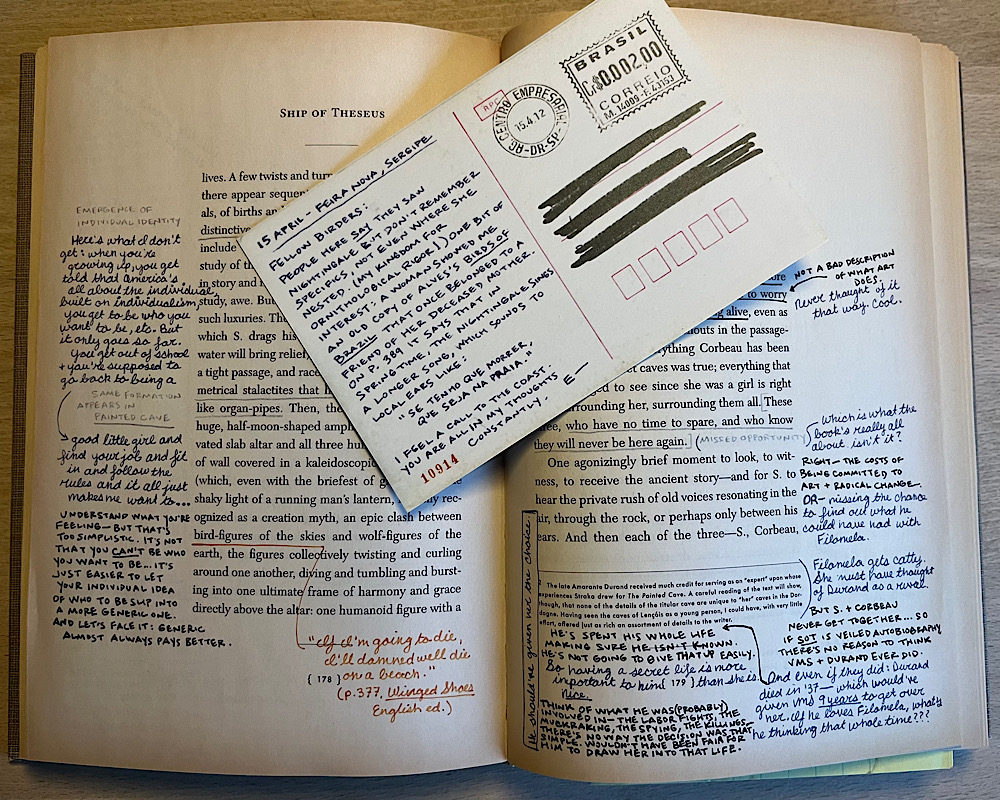 SHIP OF THESEUS
lives. A few twists and turn
there appear sequen
als, of births an
distinctive
include
study of th
in story and h
study, awe. Bu
such luxuries. Th
which S. drags his
water will bring relief
a tight passage, and race
metrical stalactites that h
like organ-pipes. Then, the
huge, half-moon-shaped amph
vated slab altar and all three hu
of wall covered in a kaleidoscopic
(which, even with the briefest of g
shaky light of a running man's lantern,
rec-
ognized as a creation myth, an epic clash between
bird-figures of the skies and wolf-figures of the
earth, the figures collectively twisting and curling
around one another, diving and tumbling and burst-
ing into one ultimate frame of harmony and grace
directly above the altar: one humanoid figure with a
[ 178 ]
EMERGENCE OF
INDIVIDUAL IDENTITY
Here's what I don't
get: when you're
growing up, you get
told that America's
all about the individual,
built on individualism,
you get to be who you
want to be, etc. But
it only goes so far.
You get out of school
+ you're supposed to
go back to being a
SAME FORMATION
APPEARS IN
PAINTED CAVE
good little girl and
find your job and fit
in and follow the
rules and it all just
makes me want to...
UNDERSTAND WHAT YOU'RE
FEELING—BUT THAT'S
TOO SIMPLISTIC. IT'S NOT
THAT YOU CAN'T BE WHO
YOU WANT TO BE... IT'S
JUST EASIER TO LET
YOUR INDIVIDUAL IDEA
OF WHO TO BE SLIP INTO
A MORE GENERIC ONE.
AND LET'S FACE IT: GENERIC
ALMOST ALWAYS PAYS BETTER.
"If I'm going to die,
I'll damned well die
on a beach."
(p. 377, Winged Shoes
English ed.)
15 APRIL - FEIRA NOVA, SERGIPE
FELLOW BIRDERS:
PEOPLE HERE SAY THEY SAW
NIGHTINGALE BUT DON'T REMEMBER
SPECIFICS, NOT EVEN WHERE SHE
NESTED. (MY KINGDOM FOR
ORNITHOLOGICAL RIGOR!) ONE BIT OF
INTEREST: A WOMAN SHOWED ME
AN OLD COPY OF ALVES'S BIRDS OF
BRAZIL THAT ONCE BELONGED TO A
FRIEND OF HER DECEASED MOTHER.
ON P. 389 IT SAYS THAT IN
SPRINGTIME, THE NIGHTINGALE SINGS
A LONGER SONG, WHICH SOUNDS TO
LOCAL EARS LIKE:
"SE TENHO QUE MORRER,
QUE SEJA NA PRAIA."
I FEEL A CALL TO THE COAST.
YOU ARE ALL IN MY THOUGHTS
CONSTANTLY.
E—
10914
APC
CENTRO EMPRESARIAL
15.4.12
AG-DR-SP
BRASIL
CR$0.002,00
CORREIO
M. 14009-F.43153
ore
to worry
g alive, even as
outs in the passage-
ything Corbeau has been
et caves was true; everything that
ed to see since she was a girl is right
urrounding her, surrounding them all. These
ee, who have no time to spare, and who know
they will never be here again.
(MISSED OPPORTUNITY)
One agonizingly brief moment to look, to wit-
ness, to receive the ancient story—and for S. to
hear the private rush of old voices resonating in the
air, through the rock, or perhaps only between his
ears. And then each of the three—S., Corbeau,
The late Amarante Durand received much credit for serving as an "expert" upon whose
experiences Straka drew for The Painted Cave. A careful reading of the text will show,
though, that none of the details of the titular cave are unique to "her" caves in the Dor-
dogne. Having seen the caves of Lençóis as a young person, I could have, with very little
effort, offered just as rich an assortment of details to the writer.
[ 179 ]
NOT A BAD DESCRIPTION
OF WHAT ART
DOES.
Never thought of it
that way. Cool.
which is what the
book's really all
about, isn't it?
RIGHT—THE COSTS OF
BEING COMMITTED TO
ART + RADICAL CHANGE.
OR—missing the chance
to find out what he
could have had with
Filomela.
Filomela gets catty.
She must have thought
of Durand as a rival.
BUT S. + CORBEAU
NEVER GET TOGETHER... SO
IF SOT IS VEILED AUTOBIOGRAPHY
THERE'S NO REASON TO THINK
VMS + DURAND EVER DID.
And even if they did: Durand
died in '37—which would've
given VMS 9 years to get over
her. If he loves Filomela, what's
he thinking that whole time???
He should've given her the choice.
HE'S SPENT HIS WHOLE LIFE
MAKING SURE HE ISN'T KNOWN.
HE'S NOT GOING TO GIVE THAT UP EASILY.
So having a secret life is more
important to him than she is.
Nice.
THINK OF WHAT HE WAS (PROBABLY)
INVOLVED IN—THE LABOR FIGHTS, THE
MUCKRAKING, THE SPYING, THE KILLINGS—
THERE'S NO WAY THE DECISION WAS THAT
SIMPLE. WOULDN'T HAVE BEEN FAIR FOR
HIM TO DRAW HER INTO THAT LIFE.